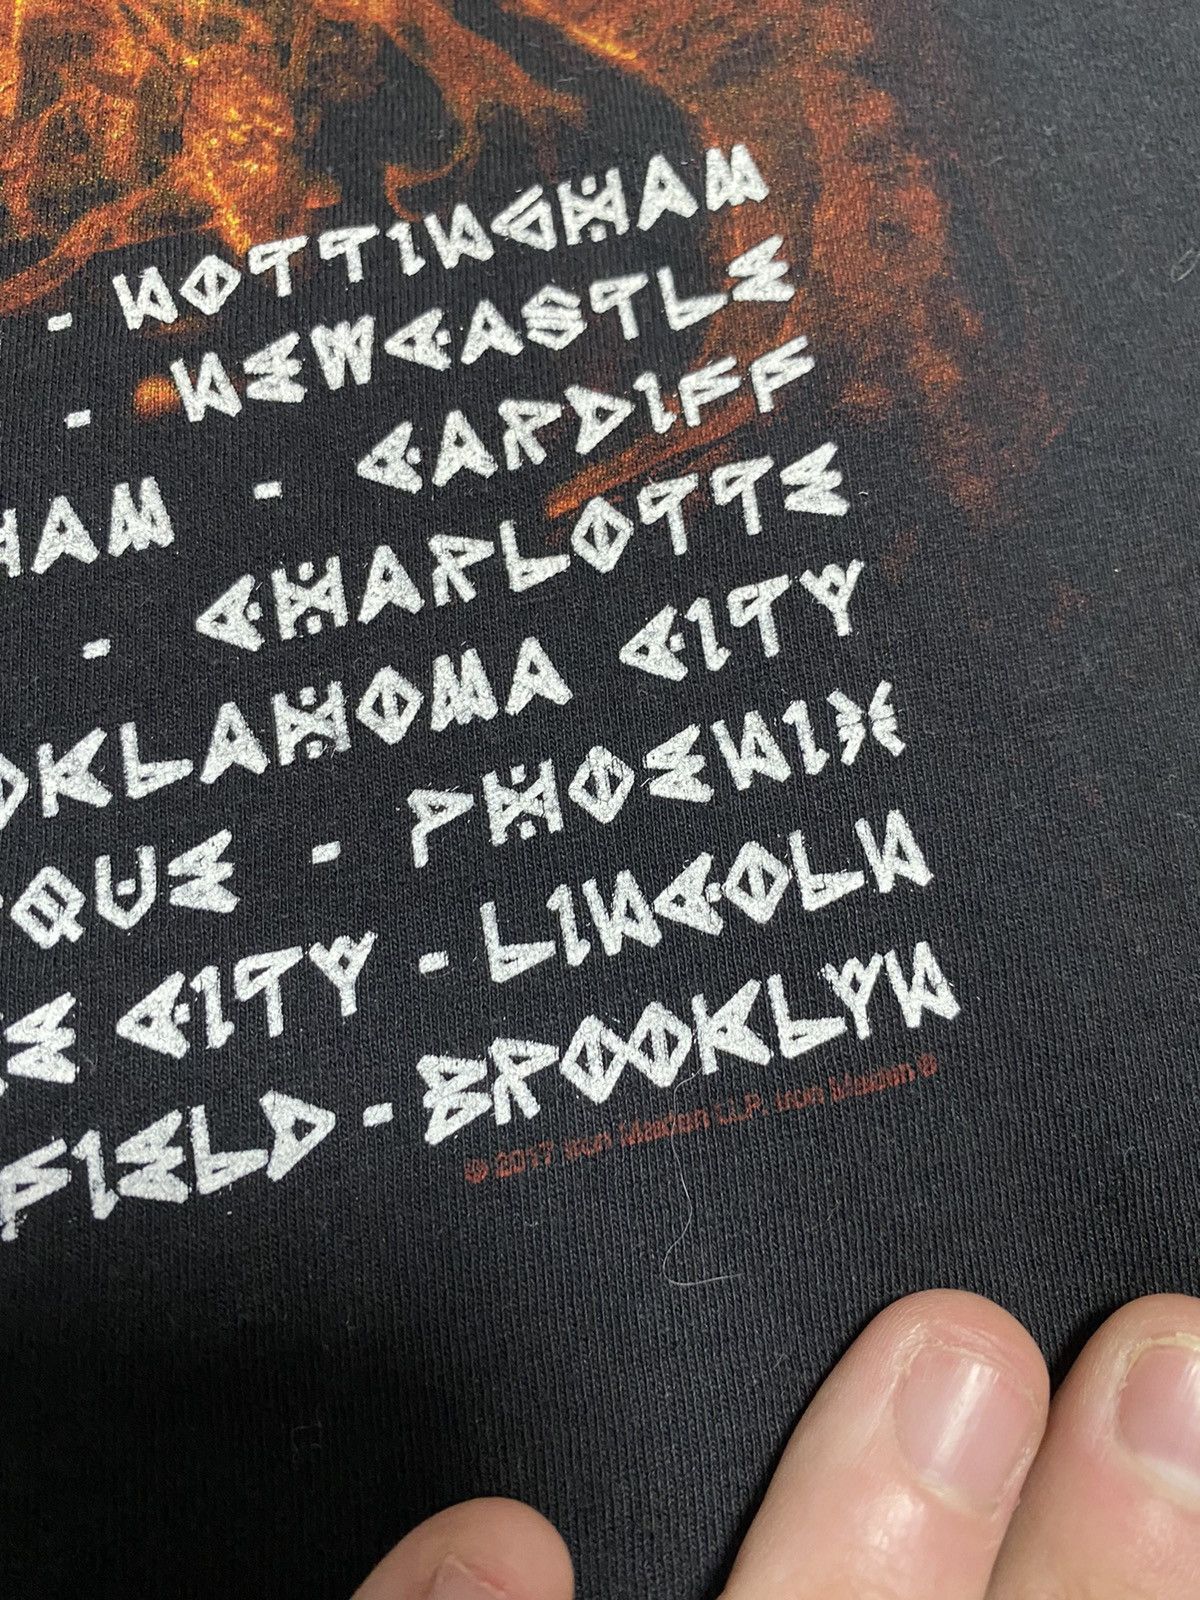 - NOTTINGHAM
- NEWCASTLE
HAM - CARDIFF
- CHARLOTTE
OKLAHOMA CITY
QUE - PHOENIX
E CITY - LINCOLN
FIELD - BROOKLYN
© 2017 Iron Maiden LLP. Iron Maiden ®